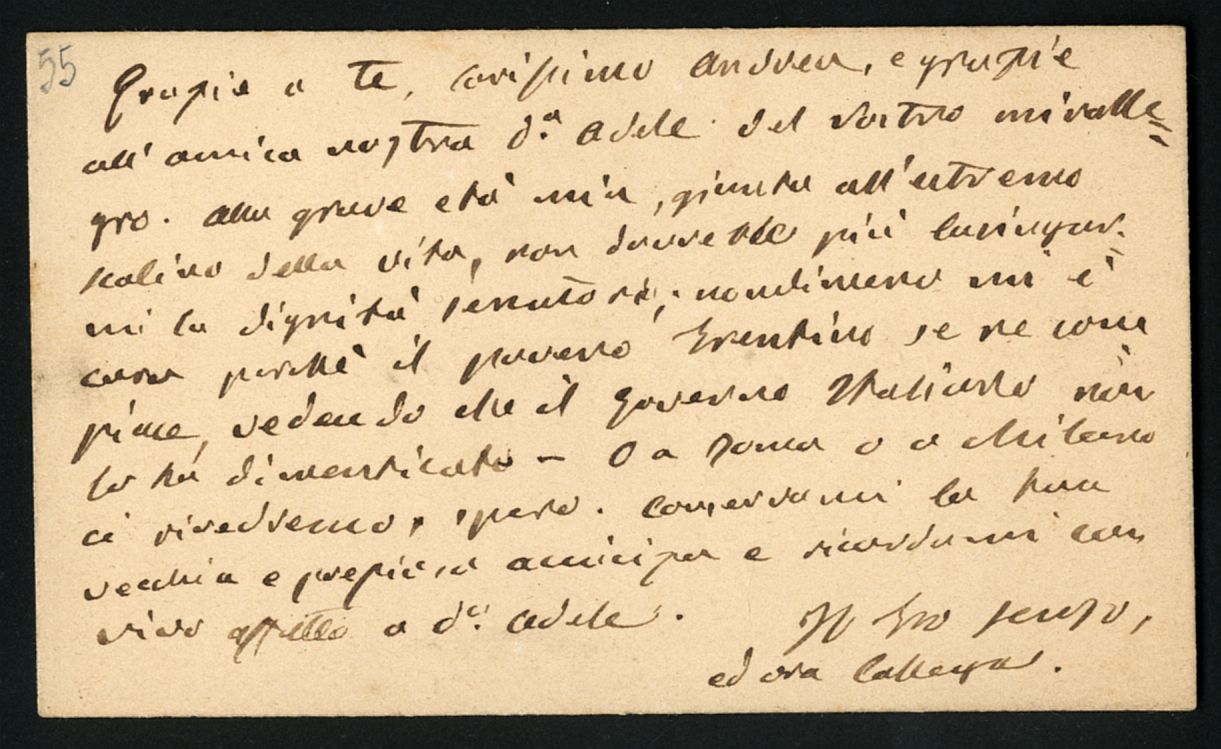 55
Grazie a te, carissimo Andrea, e grazie
all'amica nostra d.a Adele del vostro mi ralle=
gro. Alla grave età mia, giunta all'estremo
scalino della vita, non dovrebbe più lusingar-
mi la dignità senatoria; nondimeno mi è
cara perchè il povero Trentino se ne com
piace, vedendo che il governo Italiano non
lo ha dimenticato – O a Roma o a Milano
ci rivedremo, spero. Conservami la tua
vecchia e preziosa amicizia e ricordami con
vivo affetto a d.a Adele.
Il tuo
ed ora Collega.